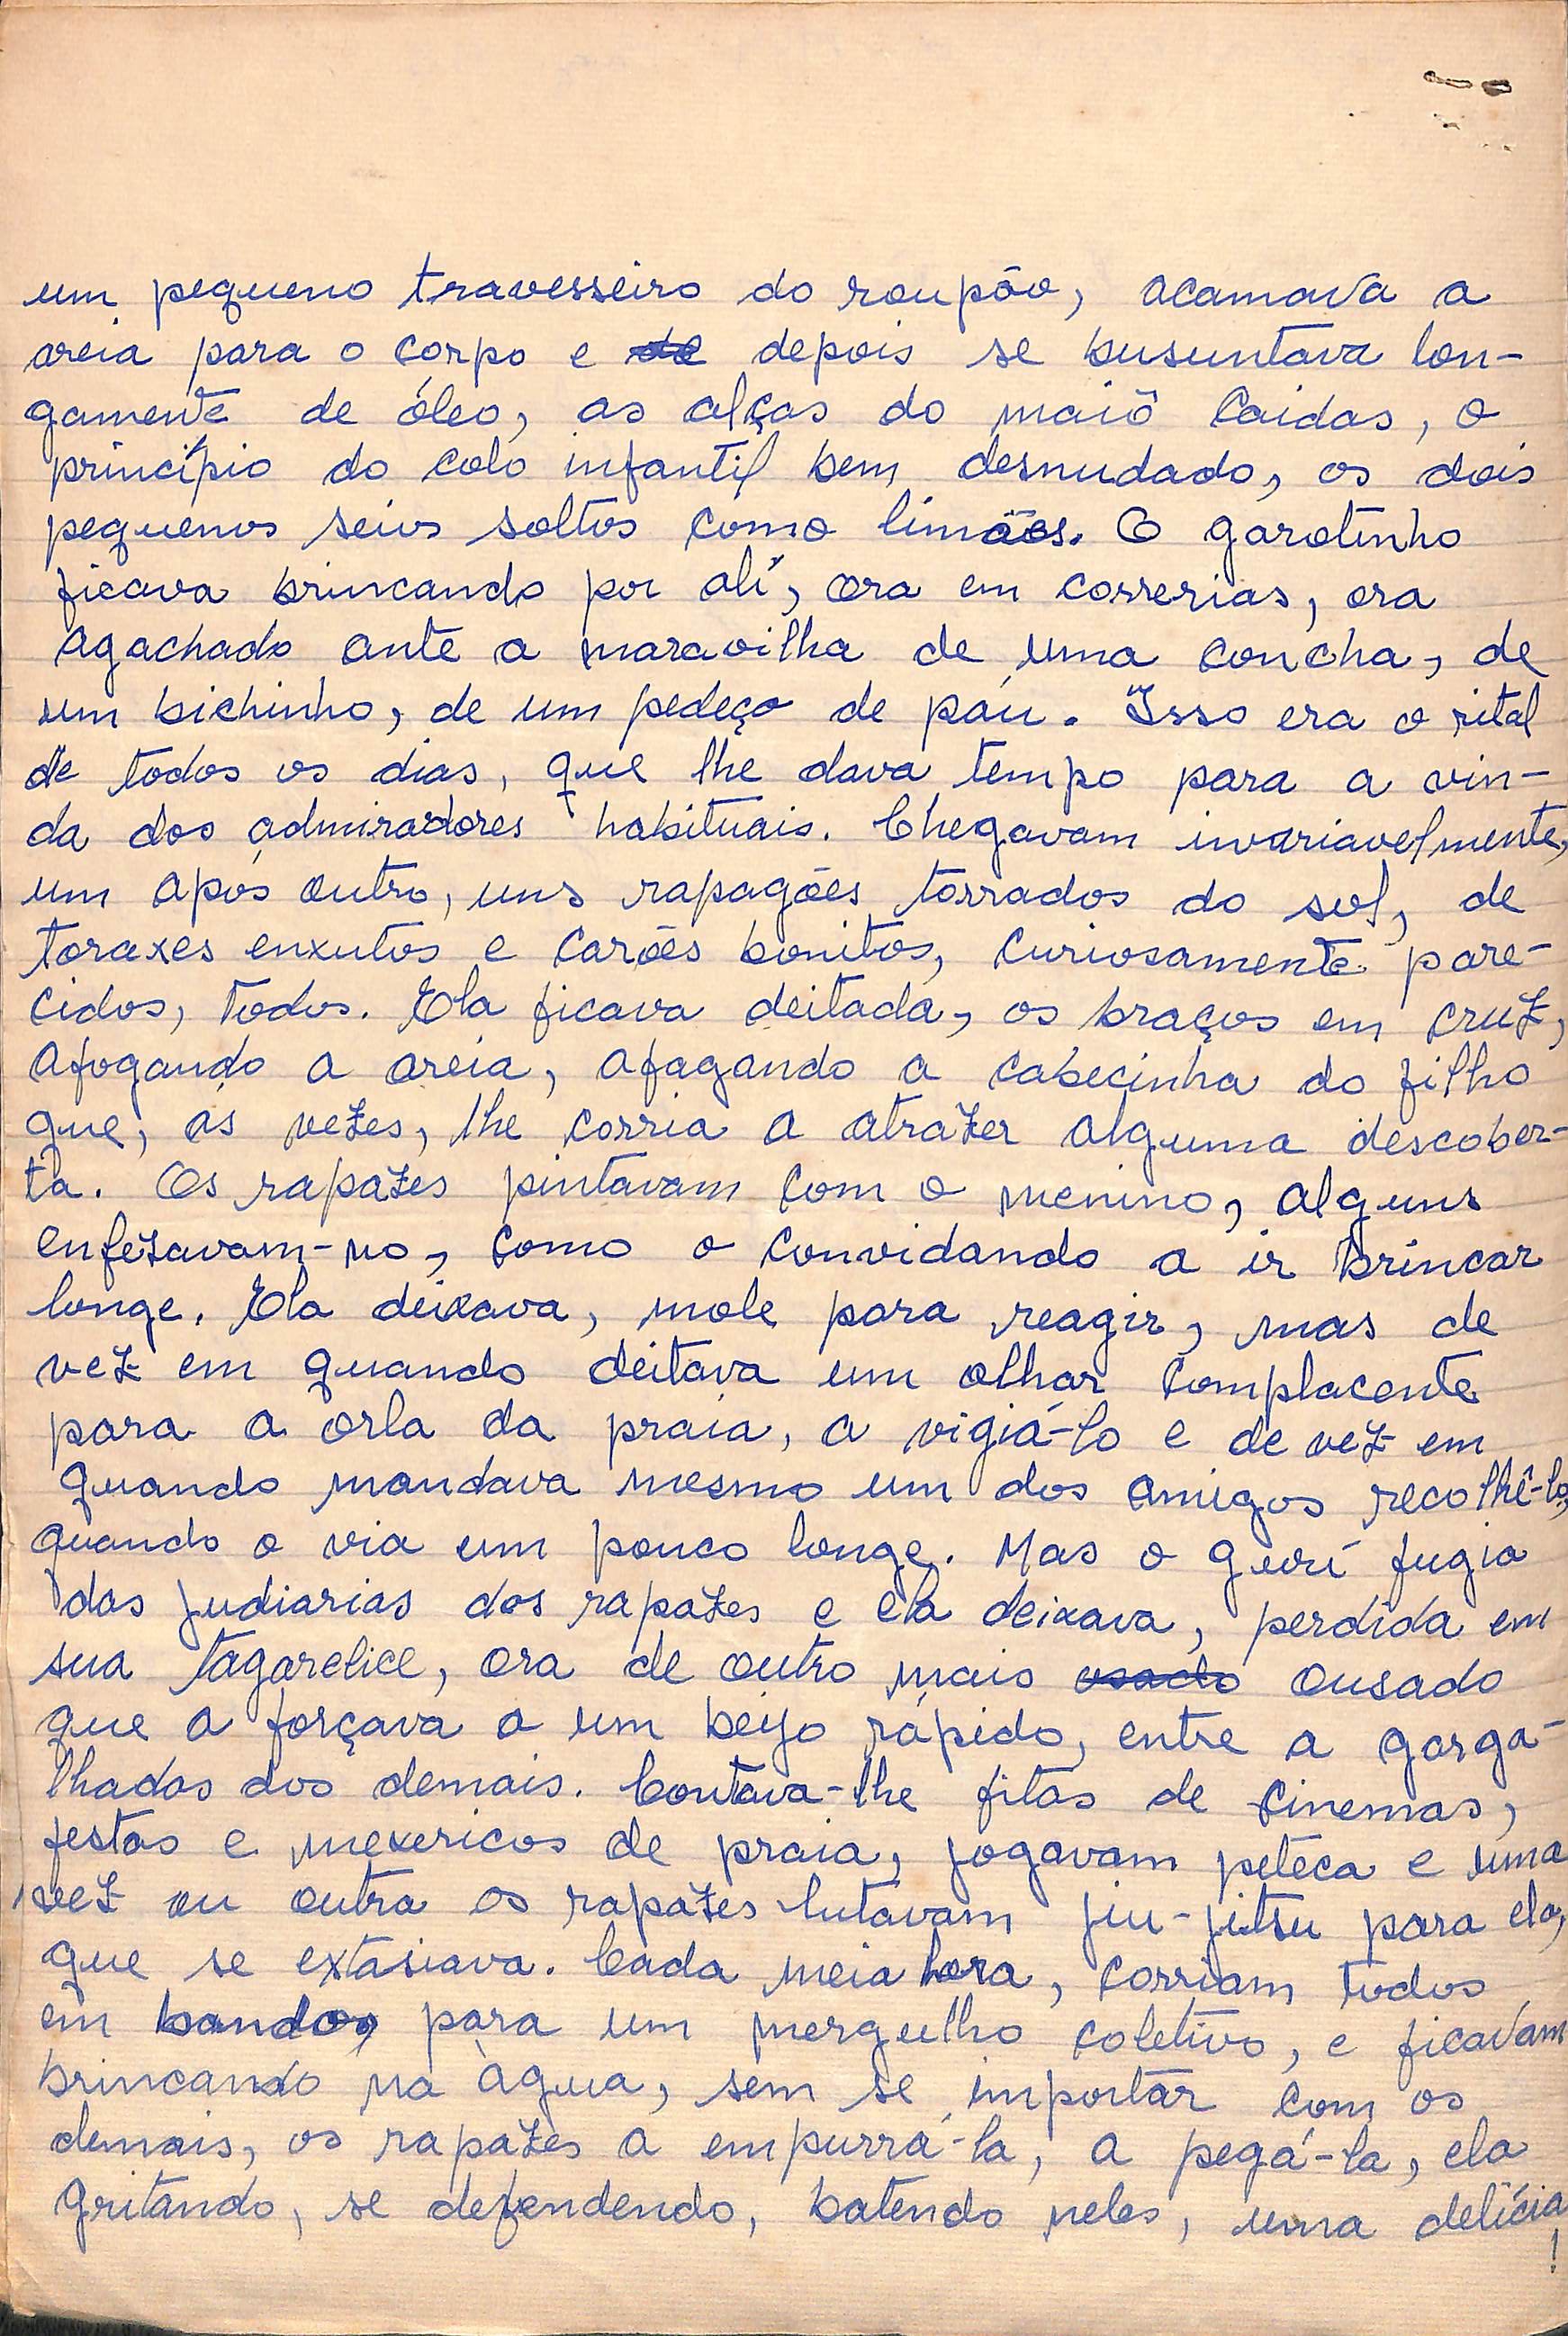 um pequeno travesseiro do roupão, acamava a
areia para o corpo e de depois se besuntava lon-
gamente de óleo, as alças do maiô caidas, o
princípio do colo infantil bem desnudado, os dois
pequenos seios soltos como limões. O garotinho
ficava brincando por alí, ora em correrias, ora
agachado ante a maravilha de uma concha, de
um bichinho, de um pedeço de páu. Isso era o rital
de todos os dias, que lhe dava tempo para a vin-
da dos admiradores habituais. Chegavam invariavelmente,
um após outro, uns rapagões torrados do sol, de
toraxes enxutos e carões bonitos, curiosamente pare-
cidos, todos. Ela ficava deitada, os braços em cruz,
afogando a areia, afagando a cabecinha do filho
que, ás vezes, lhe corria a atrazer alguma descober-
ta. Os rapazes pintavam com o menino, alguns
enfezavam-no, como o convidando a ir brincar
longe. Ela deixava, mole para reagir, mas de
vez em quando deitava um olhar complacente
para a orla da praia, a vigiá-lo e de vez em
quando mandava mesmo um dos amigos recolhê-lo,
quando o via um pouco longe. Mas o gurí fugia
das judiarias dos rapazes e ela deixava, perdida em
sua tagarelice, ora de outro mais usado ousado
que a forçava a um beijo rápido, entre a garga-
lhadas dos demais. Contava-lhe fitas de cinemas,
festas e mexericos de praia, jogavam peteca e uma
vez ou outra os rapazes lutavam jiu-jitsu para ela,
que se extasiava. Cada meia hora, corriam todos
em bando, para um mergulho coletivo, e ficavam
brincando na água, sem se importar com os
demais, os rapazes a empurrá-la, a pegá-la, ela
gritando, se defendendo, batendo neles, uma delícia
!